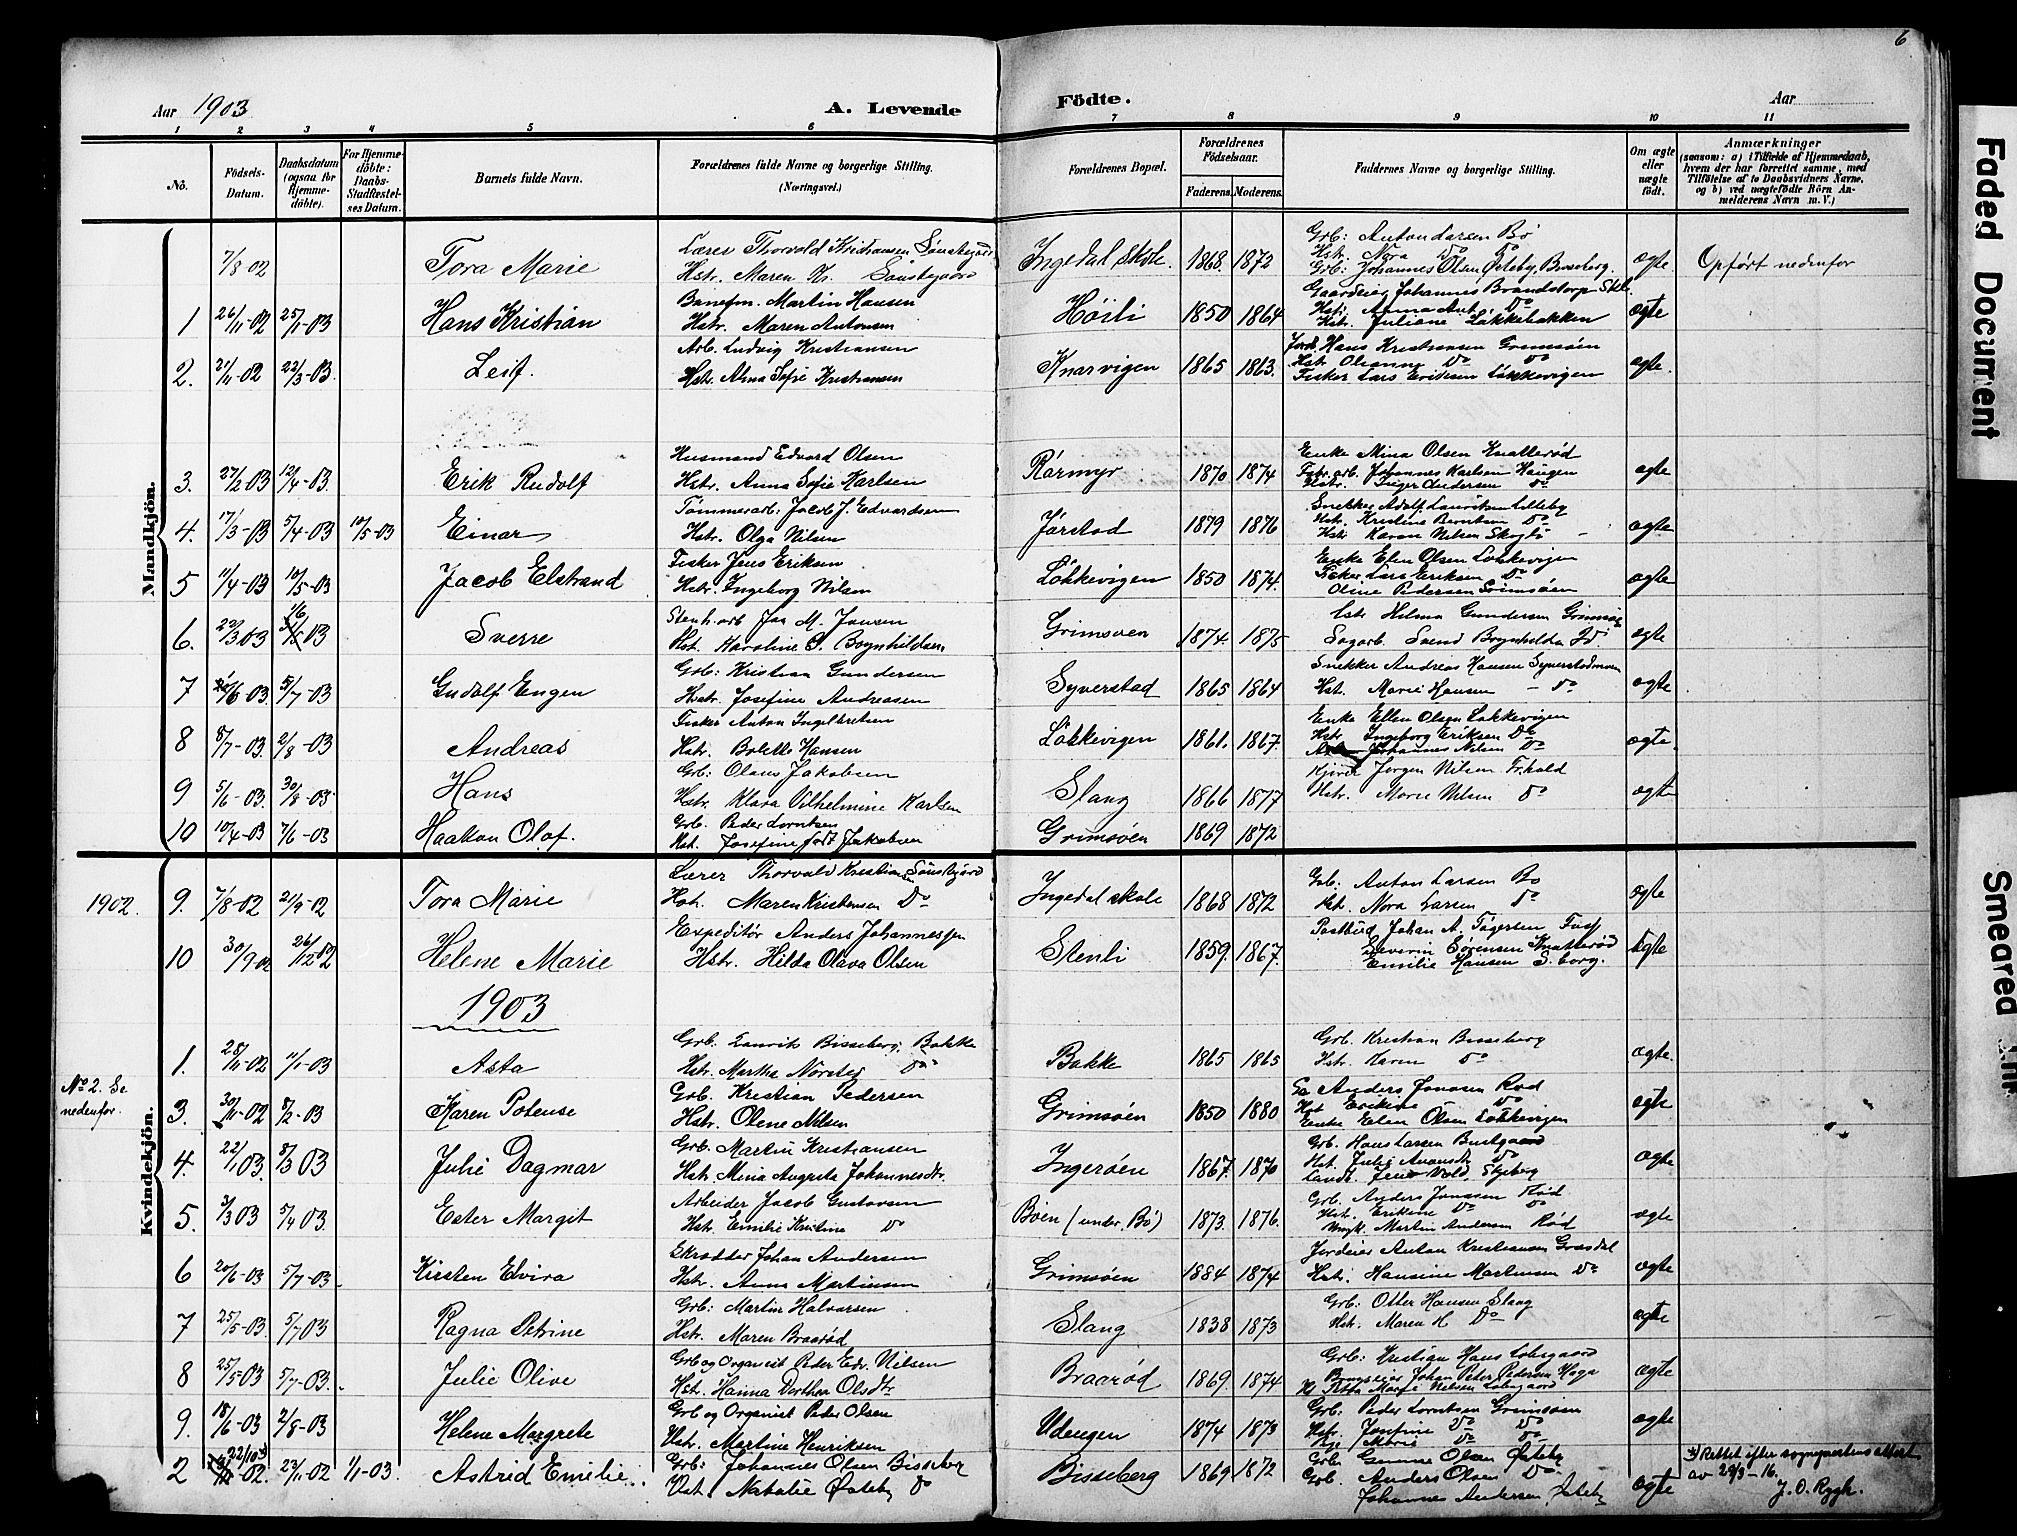 6
Aar 1903
A. Levende
Födte.
Aar
1 2 3 4 5 6 7 8 9 10 11
No.
Födsels-Datum.
Daabsdatum (ogsaa for Hjemme-döbte).
For Hjemme-döbte: Daabs-Stadfæstel-ses Datum.
Barnets fulde Navn.
Forældrenes fulde Navne og borgerlige Stilling. (Næringsvei.)
Forældrenes Bopæl.
Forældrenes Födselsaar.
Faderens. Moderens.
Faddernes Navne og borgerlige Stilling.
Om ægte eller uægte födt.
Anmærkninger
(saasom: a) i Tilfælde af Hjemmedaab, hvem der har forrettet samme, med Tilföielse af to Daabsvidners Navne, og b) ved uægtefödte Börn An-melderens Navn m. V.)
Mandkjön.
7/8 02 Tora Marie Lærer Thorvald Kristiansen Sønstegaard
Hstr. Maren Kr. Sønstegaard Ingedal skole 1868. 1872 Grb: Anton Larsen Bö
Hstr. Nora Do Do
Grb: Johannes Olsen Østeby, Bisseberg. ægte Opført nedenfor
1 26/11-02 25/1-03 Hans Kristian Banefm. Martin Hansen
Hstr. Maren Antonsen Høili 1850 1864 Gaardeier Johannes Brandstorp
Hstr. Anna Do
Hstr. Juliane Løkkebakken ægte
2. 21/11-02 22/3-03. Leif. Arb. Ludvig Kristiansen
Hstr. Alma Sofie Kristiansen Knarvigen 1865 1863. Hans Kristiansen Grimsøen
Hst Oleanne Do Do
Fisker Lars Eriksen Løkkevigen ægte.
3. 27/2 03 12/4-03. Erik Rudolf Husmand Edvard Olsen
Hstr. Anna Sofie Karlsen Rørmyr 1870 1874 Enke Mina Olsen Knatterød
Fabr. arb. Johannes Karlsen Haugen
Hstr. Inger Andersen Do ægte
4. 17/3-03 5/4-03 10/5-03 Einar Tømmerarb: Jacob J. Edvardsen
Hstr. Olga Nilsen Jørstad 1879 1876 Snekker Adolf Lauritsen Lilleby
Hstr. Kristine Berntsen Do
Hstr Karen Nilsen Skogli ægte
5 11/4-03 10/5-03 Jacob Elstrand Fisker Jens Eriksen
Hstr. Ingeborg Nilsen Løkkevigen 1850 1874. Enke Elen Olsen Løkkevigen
Fisker Lars Eriksen Do
Oline Pedersen Grimsøen ægte
6. 22/3 03 1/6 03 Sverre Stenh.arb Jon M. Jonsen
Hst. Karoline S. Brynhildsen Grimsøen 1874. 1875 Hstr Helma Gundersen Grimsøen
Sagarb Svend Brynhildsen Do ægte
7 6-03. 5/7-03 Gudolf Engen Grb: Kristian Gundersen
Hstr. Josefine Andreasen Syverstad 1865 1864 Snekker Andreas Hansen Syverstadmoen
Hst. Marie Hansen - Do ægte
8 8/7-03 2/8-03 Andreas Fisker Anton Ingebretsen
Hstr. Bolette Hansen Løkkevigen 1861. 1867. Enke Ellen Olsen Løkkevigen
Hstr Ingeborg Eriksen Do
Johannes Nilsen Do ægte.
9 5/6-03. 30/8-03 Hans Grb: Olaus Jakobsen
Hstr. Klara Vilhelmine Karlsen Slang 1866 1877 Jørgen Nilsen Fr.hald
Hstr. Marie Nilsen Do ægte
10 10/4-03 7/6-03 Haakon Olaf. Grb. Peder Lorntsen
Hst. Josefine født Jakobsen Grimsøen 1869 1872
Kvindekjön.
1902. 9. 7/8-02 21/9-02 Tora Marie Lærer Thorvald Kristiansen Sønstegaard
Hst. Maren Kristensen Do Ingedal skole 1868 1872 Grb: Anton Larsen Bo
Hst. Nora Larsen Do ægte
10 30/9 02 26/12 02 Helene Marie Expeditør Anders Johannessen
Hstr. Hilda Olava Olsen Stenli 1859. 1867. Postbud Johan A. Tøgersen
Severin Sørensen Knatterød
Emilie Hansen S.borg. ægte
1903
1. 28/11-02 11/1-03 Asta Grb. Laurits Bisseberg, Bakke
Hstr. Martha Norsted Do Bakke 1865 1865 Grb. Kristian Bisseberg
Hstr. Karen Do ægte
No 2. Se nedenfor.
3. 30/11-02 8/2-03 Karen Potense Grb. Kristian Pedersen
Hstr. Olene Nilsen Grimsøen 1850 1880 Anders Jonasen Rød
Hst Erikine Do
Enke Elen Olsen Løkkevigen ægte
4. 22/1 03. 8/3 03 Julie Dagmar Grb. Martin Kristiansen
Hstr. Mina Augusta Johannesdtr. Ingerøen 1867. 1870 Grb. Hans Larsen Bustgaard
Hst. Julie Do
Skjeberg ægte
5. 3/3 03 5/4 03. Ester Margit Arbeider Jacob Gustavsen
Hst. Emilie Kristine Do Boen (under Bö) 1873. 1876. Grb. Anders Jonassen Rød
Hst. Erikine Do Do
Martin Andersen Rød ægte
6 20/6-03 5/7-03. Kirsten Elvira Skrædder Johan Andersen
Hstr. Anna Martinsen Grimsøen 1884 1874 Jordeier Anton Kristiansen Græsdal
Hstr. Hansine Martinsen Do ægte
7 25/5-03. 5/7 03 Ragna Petrine Grb: Martin Halvorsen
Hstr. Maren Braarød Slang 1838 1873 Grb: Otter Hansen Slang
Hst. Maren H Do ægte
8 25/5-03 5/7-03. Julie Olive Grb og Organist Peder Edv. Nilsen
Hst. Hanna Dorthea Olsdtr Braarød 1869. 1874 Grb: Kristian Hans Labugaard
Johan Peter Pedersen Høga ægte
9. 18/6-03 2/8-03 Helene Margrete Grb og Organist Peder Olsen
Hstr. Martine Henriksen Udengen 1874 1873 Grb: Peder Lorntsen Grimsøen
Hstr. Josefine Do Do
Marie Do Do ægte
2 22/10 02. 23/11-02 1/1-03. Astrid Emilie Grb: Johannes Olsen Bisseberg
Hst. Natalie Østeby Do Bisseberg 1869 1872 Grb Gunne Olsen Østeby
Grb. Anders Olsen Do
Johannes Andersen Østeby ægte *) Rettet efter sogneprestens attest av 29/3-16. J. O. Rygh.
Faded Document
Smeared